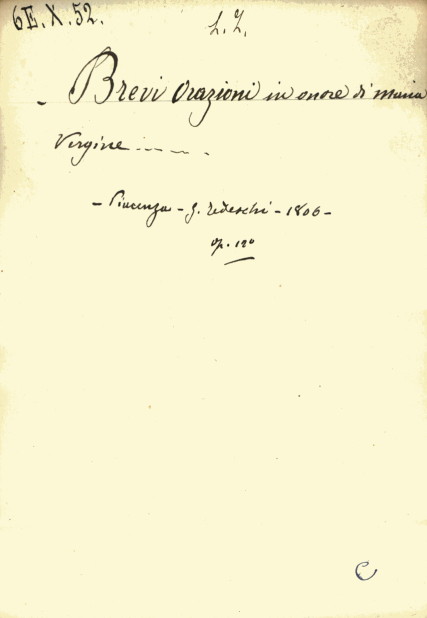 6E.X.52.
L.L.
- Brevi Orazioni in onore di Maria
Vergine ... - - .
- Piacenza - G. Tedeschi - 1806 -
op. 12°
C